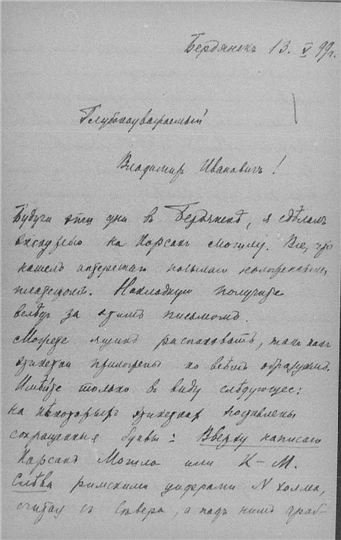 Бердянскъ 13. V 99г.
Глубокоуважаемый
Владимиръ Ивановичъ!
Будучи эти дни въ Бердянскѣ, я сдѣлалъ
экскурсію на Корсакъ Могилу. Все, что
нашелъ интереснаго посылаю наложеннымъ
платежомъ. Накладную получите
вслѣдъ за этимъ письмомъ.
Можете ящикъ распаковать, такъ какъ
этикетки приложены ко всѣмъ образцамъ.
Имѣйте только въ виду слѣдующее:
на нѣкоторыхъ этикеткахъ поставлены
сокращенныя буквы: Вверху написано
Корсакъ Могила или К–М.
Слѣва римскими цифрами N холма,
считая съ Сѣвера, а подъ нимъ